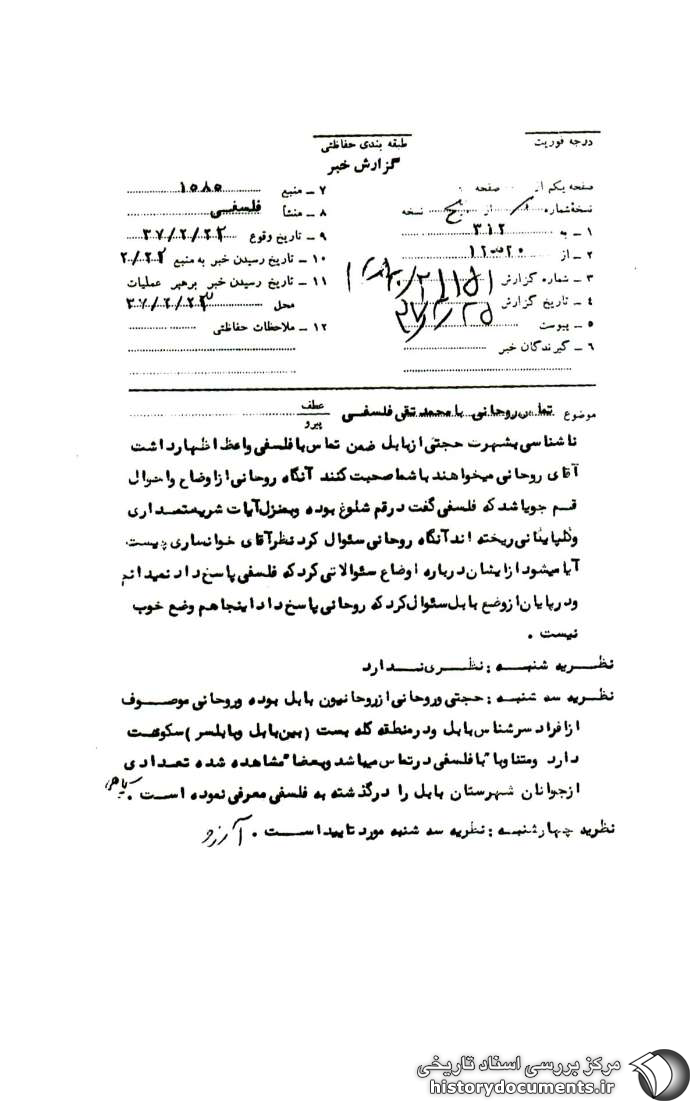 درجه فوریت
طبقه بندی حفاظتی
گزارش خبر
صفحه یکم از صفحه
نسخهٔ شماره از نسخه
۱ ـ به ۳۱۲
۲ ـ از ۲۰ ه‍ ۱۲
۳ ـ شماره گزارش
۴ ـ تاریخ گزارش
۵ ـ پیوست
۶ ـ گیرندگان خبر
۷ ـ منبع ۱۵۸۵
۸ ـ منشأ فلسفی
۹ ـ تاریخ وقوع ۳۷/۲/۲۳
۱۰ ـ تاریخ رسیدن خبر به منبع
۱۱ ـ تاریخ رسیدن خبر برهبر عملیات
محل ۳۷/۲/۲۳
۱۲ ـ ملاحظات حفاظتی
موضوع تماس روحانی با محمد تقی فلسفی عطف
پیرو
ناشناسی بشهرت حجتی از بابل ضمن تماس با فلسفی واعظ اظهار داشت
آقای روحانی میخواهند با شما صحبت کنند آنگاه روحانی از اوضاع واحوال
قم جویا شد که فلسفی گفت در قم شلوغ بوده و بمنزل آیات شریعتمداری
وگلپایگانی ریخته اند آنگاه روحانی سئوال کرد نظر آقای خوانساری چیست
آیا میشود از ایشان درباره اوضاع سئوالاتی کرد که فلسفی پاسخ داد نمیدانم
ودر پایان از وضع بابل سئوال کرد که روحانی پاسخ داد اینجا هم وضع خوب
نیست .
نظریه شنبه : نظری ندارد
نظریه سه شنبه : حجتی وروحانی از روحانیون بابل بوده وروحانی موصوف
از افراد سرشناس بابل ودر منطقه کله بست (بین بابل وبابلسر) سکونت
دارد ومتناوبا" با فلسفی در تماس میباشد وبعضا" مشاهده شده تعدادی
از جوانان شهرستان بابل را در گذشته به فلسفی معرفی نموده است .
نظریه چهارشنبه : نظریه سه شنبه مورد تایید است . آرزو
مرکز بررسی اسناد تاریخی
historydocuments.ir